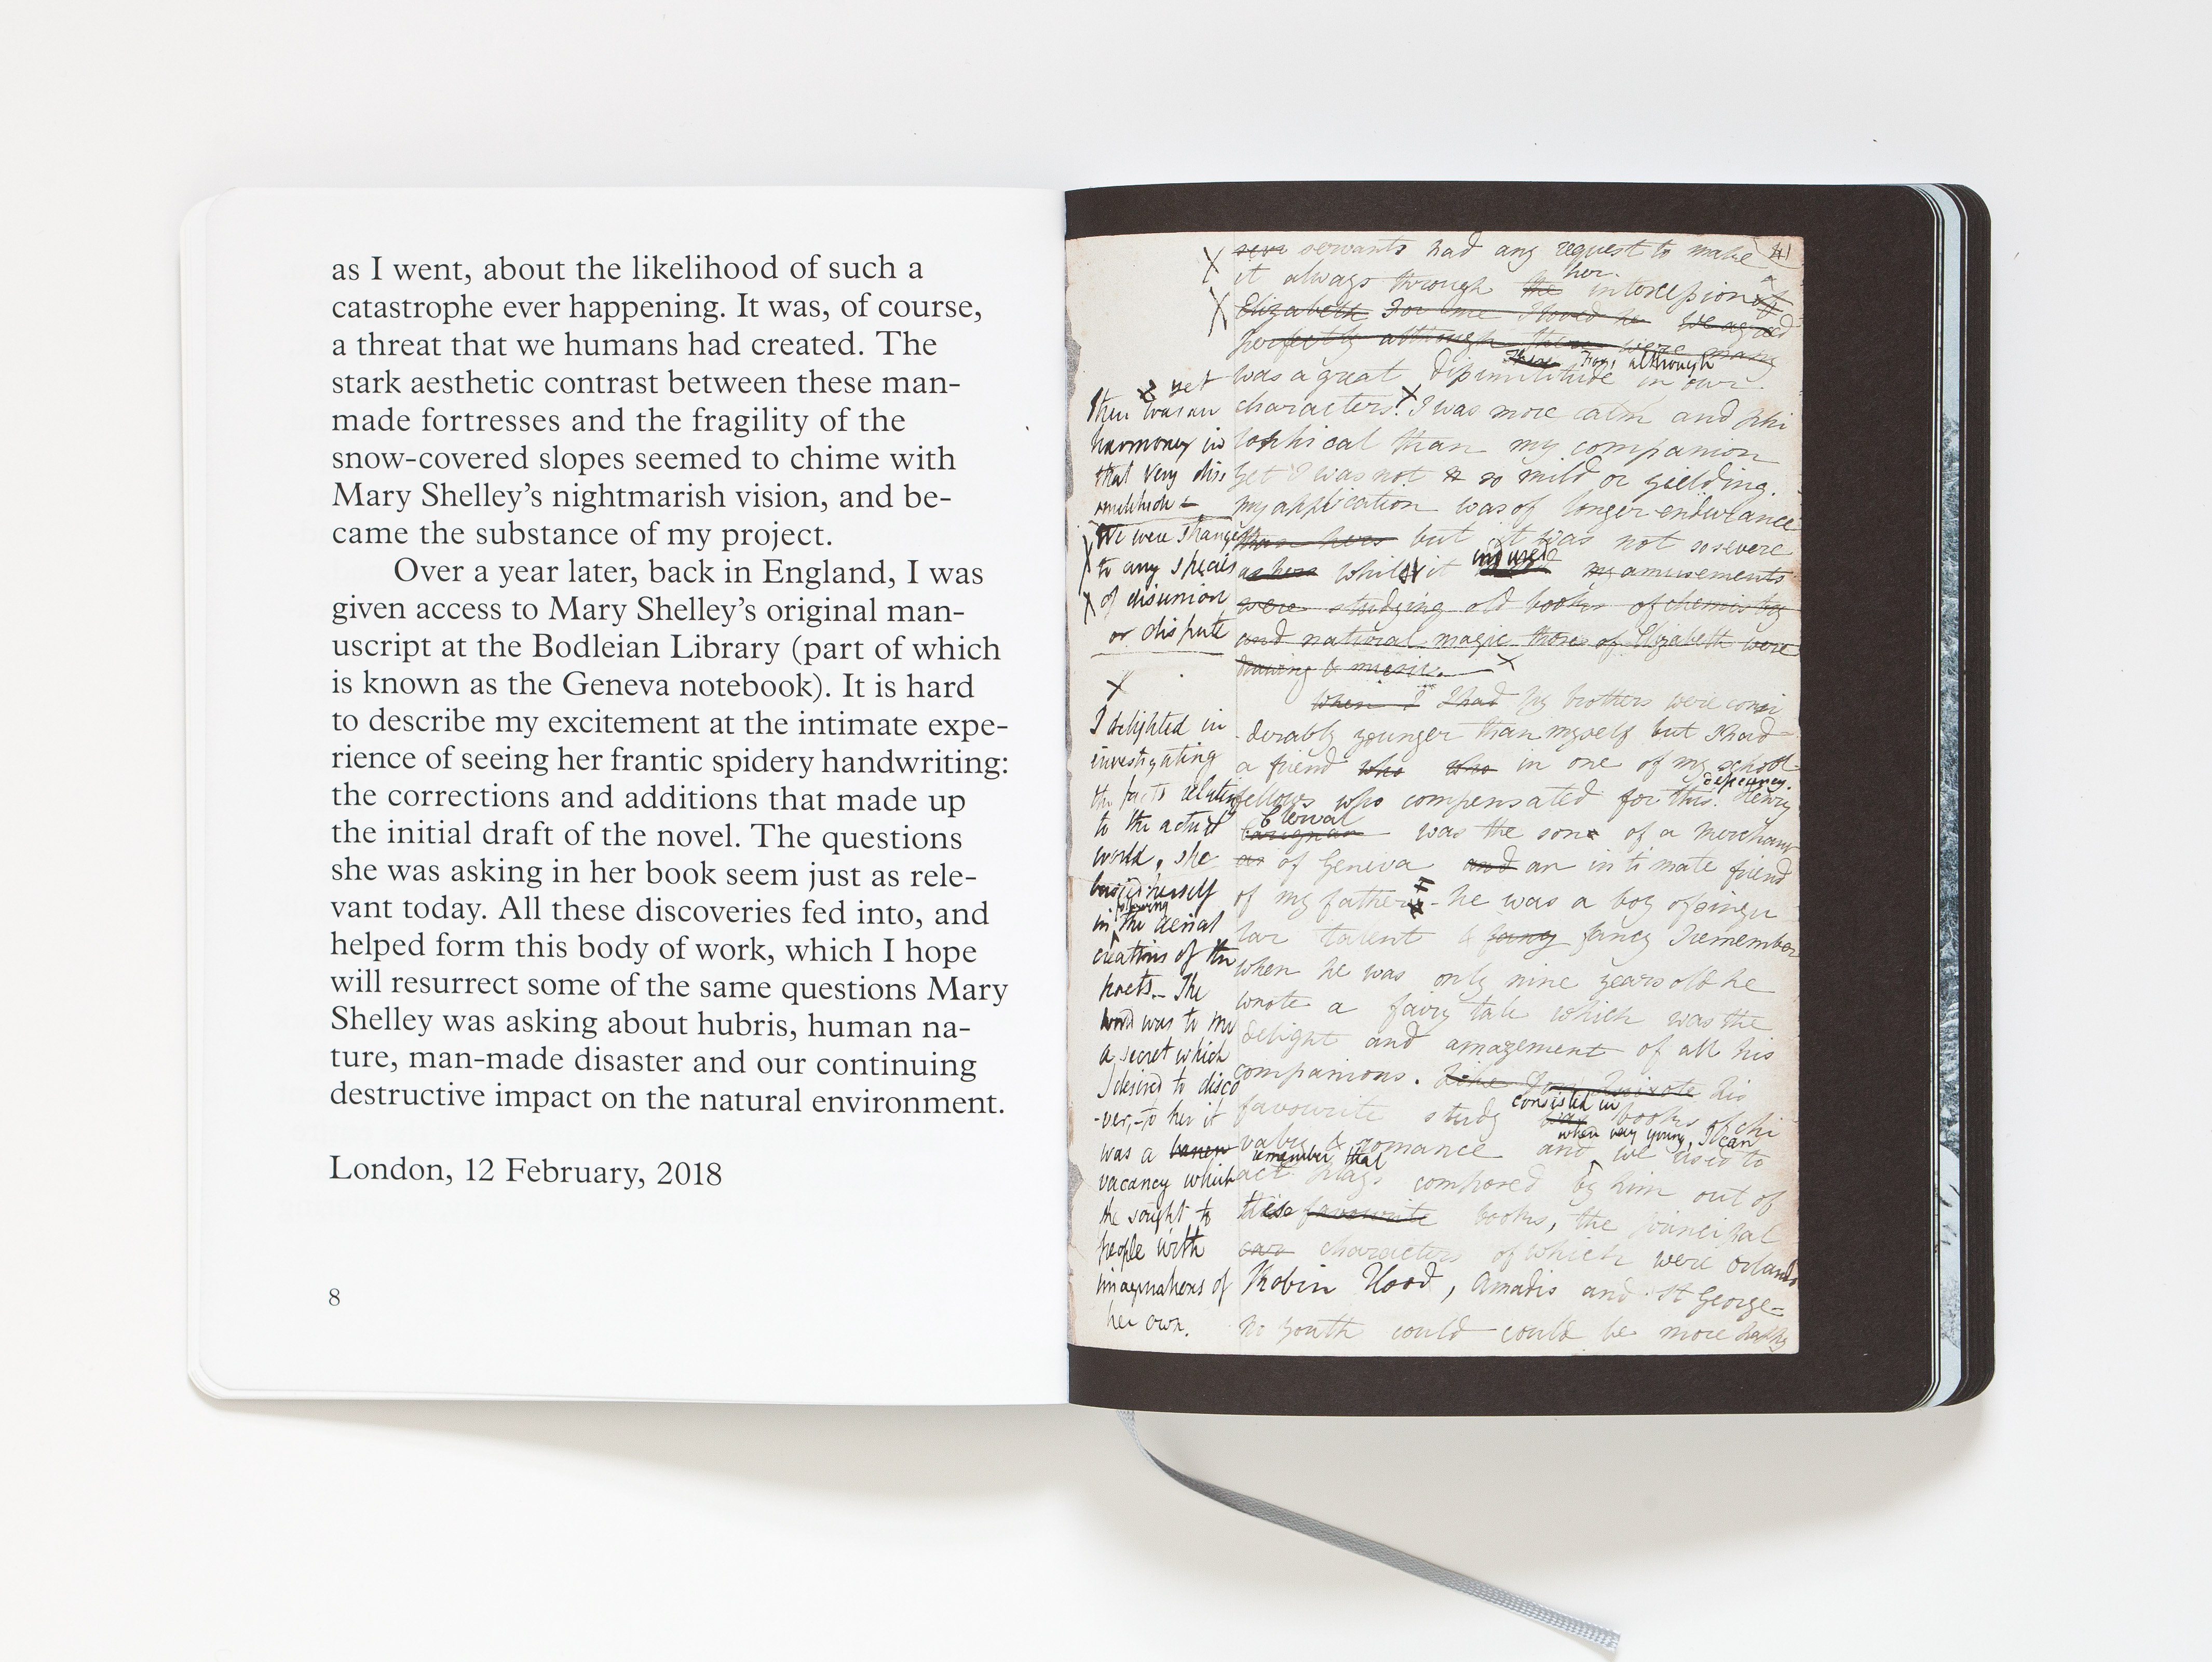 as I went, about the likelihood of such a
catastrophe ever happening. It was, of course,
a threat that we humans had created. The
stark aesthetic contrast between these man-
made fortresses and the fragility of the
snow-covered slopes seemed to chime with
Mary Shelley's nightmarish vision, and be-
came the substance of my project.
Over a year later, back in England, I was
given access to Mary Shelley's original man-
uscript at the Bodleian Library (part of which
is known as the Geneva notebook). It is hard
to describe my excitement at the intimate expe-
rience of seeing her frantic spidery handwriting:
the corrections and additions that made up
the initial draft of the novel. The questions
she was asking in her book seem just as rele-
vant today. All these discoveries fed into, and
helped form this body of work, which I hope
will resurrect some of the same questions Mary
Shelley was asking about hubris, human na-
ture, man-made disaster and our continuing
destructive impact on the natural environment.
London, 12 February, 2018
8
servants had any request to make 41
her
it always through the intercession of
Elizabeth For me I loved he We agreed
perfectly although there were many
There For, although
was a great dissimilitude in our
characters. I was more calm and phi
losophical than my companion
yet I was not so mild or yielding.
my application was of longer endurance
than hers but it was not so severe
endured
as hers whilst it my amusements
were studying old books of chemistry
and natural magic those of Elizabeth were
drawing & music.
When I I had My brothers were consi
derably younger than myself but I had
a friend who who in one of my school
deficiency.
fellows who compensated for this. Henry
Clerval
was the son of a merchant
of Geneva and an intimate friend
of my father - he was a boy of singu
lar talent & fancy I remember
when he was only nine years old he
wrote a fairy tale which was the
delight and amazement of all his
companions. Like Don Quixote his
consisted in
favourite study was books of chi
when very young, I can
valry & romance and we used to
remember that
act plays composed by him out of
these favourite books, the principal
characters of which were Orlando
Robin Hood, Amadis and St George-
No youth could could be more happy
& yet
there was an
harmony in
that very dis
similitude -
We were strangers
to any species
of disunion
or dispute
I delighted in
investigating
the facts relative
to the actual
world, she
busied herself
following
in the aerial
creations of the
poets. - The
world was to me
a secret which
I desired to disco
-ver, - to her it
was a
vacancy which
she sought to
people with
imaginations of
her own.